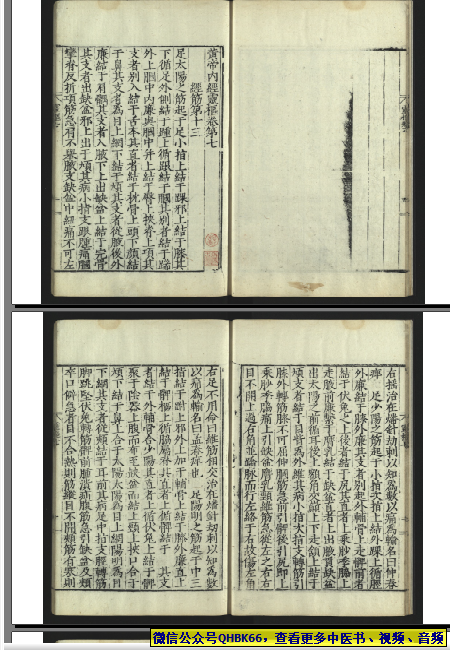 黃帝内經靈樞卷第七
經筋第十三
足太陽之筋起于足小指上結于踝邪上結于膝其
下循足外側結于踵上循跟結于膕其别者結于踹
外上膕中内廉與膕中并上結于臀上挾脊上項其
支者别入結于舌本其直者結于枕骨上頭下顔結
于鼻其支者為目上網下結于頄其支者從腋後外
廉結于肩髃其支者入腋下上出缺盆上結于完骨
其支者出缺盆邪上出于頄其病小指支跟腫痛膕
攣脊反折項筋急肩不舉腋支缺盆中紐痛不可左
右揺治在燔針刼刺以知為數以痛為輸名曰仲春
痺 足少陽之筋起于小指次指上結外踝上循脛
外廉結于膝外廉其支者别起外輔骨上走髀前者
結于伏兔之上後者結于尻其直者上乘䏚季脇上
走腋前廉繫于膺乳結于缺盆直者上出腋貫缺盆
出太陽之前循耳後上額角交巔上下走頷上結于
頄支者結于目眥為外維其病小指次指支轉筋引
膝外轉筋膝不可屈伸膕筋急前引髀後引尻即上
乘䏚季脇痛上引缺盆膺乳頸維筋急從左之右右
目不開上過右角並蹻脉而行左絡于右故傷左角
右足不用命曰維筋相交治在燔針刼刺以知為數
以痛為輸名曰孟春痺也 足陽明之筋起于中三
指結于跗上邪外上加于輔骨上結于膝外廉直上
結于髀樞上循脇屬脊其直者上循骭結于 其支
者結于外輔骨合少陽其直者上循伏兔上結于髀
聚于陰器上腹而布至缺盆而結上頸上挾口合于
頄下結于鼻上合于太陽太陽為目上網陽明為目
下網其支者從頰結于耳前其病足中指支脛轉筋
脚跳堅伏兔轉筋髀前腫㿉疝腹筋急引缺盆及頰
卒口僻急者目不合熱則筋縱目不開頰筋有寒則
微信公众号QHBK66，查看更多中医书、视频、音频